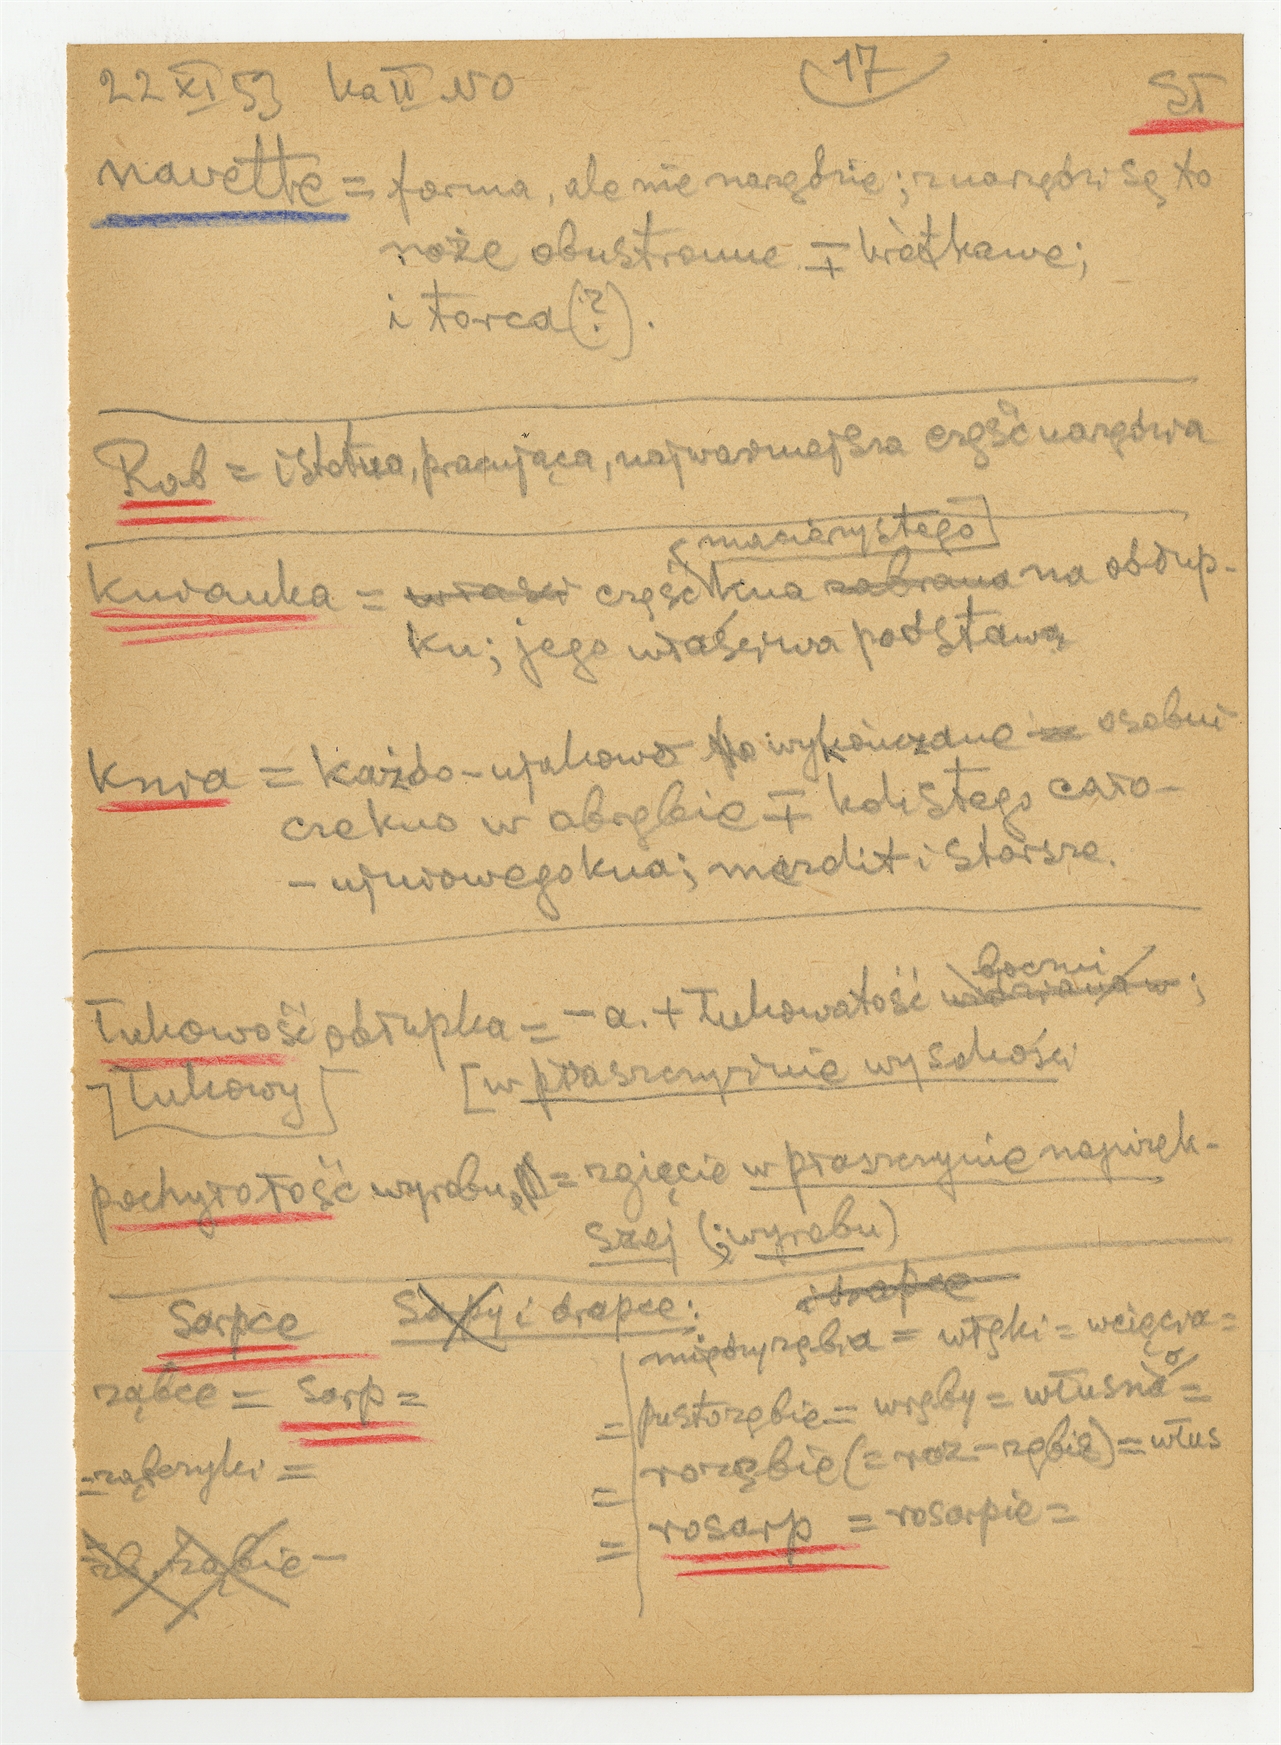 22 XI 53 ka II NO
17
ST
navette = forma, ale nie narzędzie; z narzędzi są to
noże obustronne ∓ krótkawe;
i tarca (?).
Rob = istotna, pracująca, najważniejsza część narzędzia
[macierzystego]
Knianka = część kna zabrana na obłup-
ku; jego właściwa podstawa
Knia = każdo-ujakowo wykończane osobni
czekno w obrębie ∓ kolistego cało-
-ujniowego kna; mezolit i starsze.
boczni
Łukowość obłupka = -a. + Łukowatość ;
[Łukowy] [w płaszczyźnie wysokości
pochyłotość wyrobu = zgięcie w płaszczyźnie najwięk-
szej (; wyrobu)
Sarpce Sarpy i drapce:
drapce
ząbce = sarp =
= ząbczyki =
ząbie -
międzyzębia = włęki = wcięcia =
= pustozębie = wręby = włusno =
= rozębie (= roz-zębie) = włus
= rosarp = rosarpie =